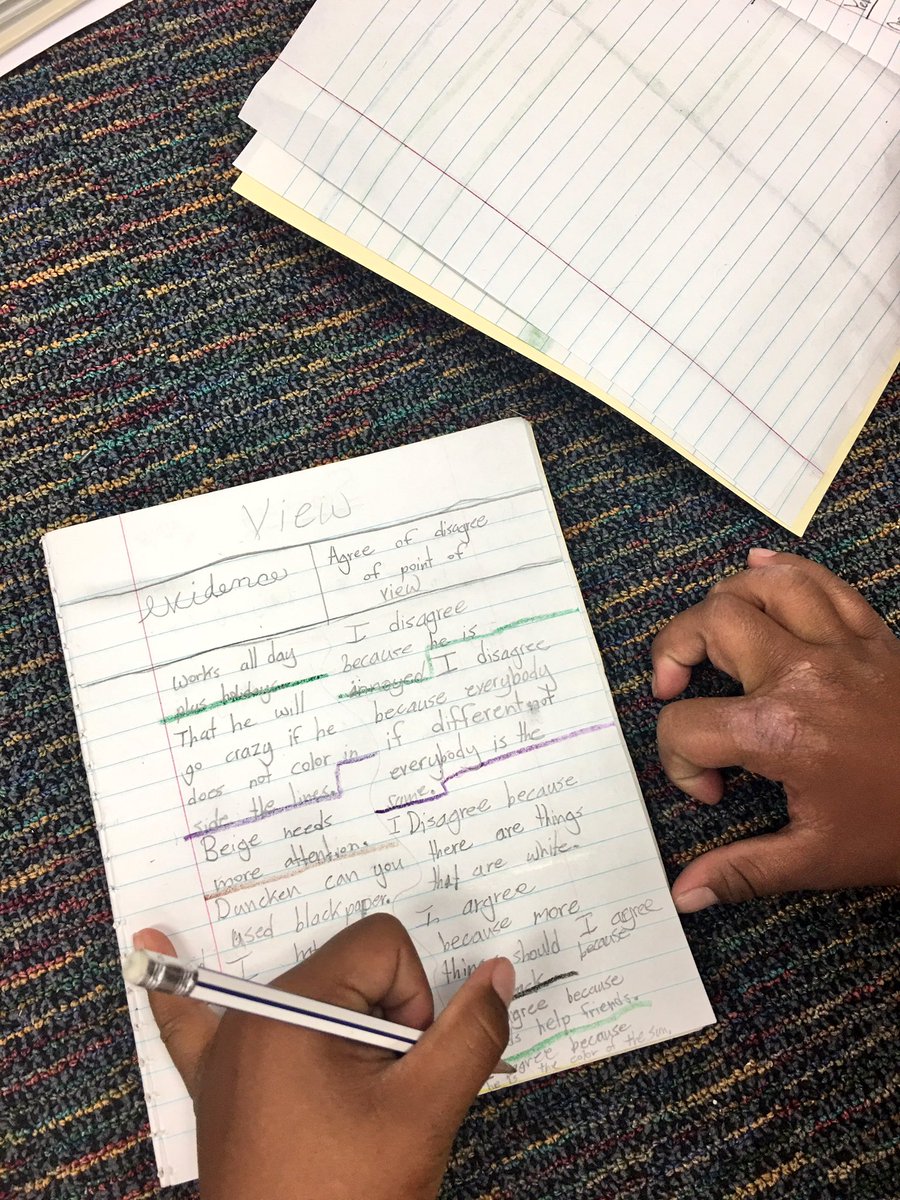 View
evidence
Agree of disagree
of point of
view
works all day
plus holidays
That he will
go crazy if he
does not color in
side the lines.
Beige needs
more attention.
Duncken can you
used black paper.
I
I disagree
because he is
annoyed I disagree
because everybody
if different not
everybody is the
same.
I Disagree because
there are things
that are white.
I argree
because more
things should I agree
because
because
help friends.
because
he is the color of the sun.